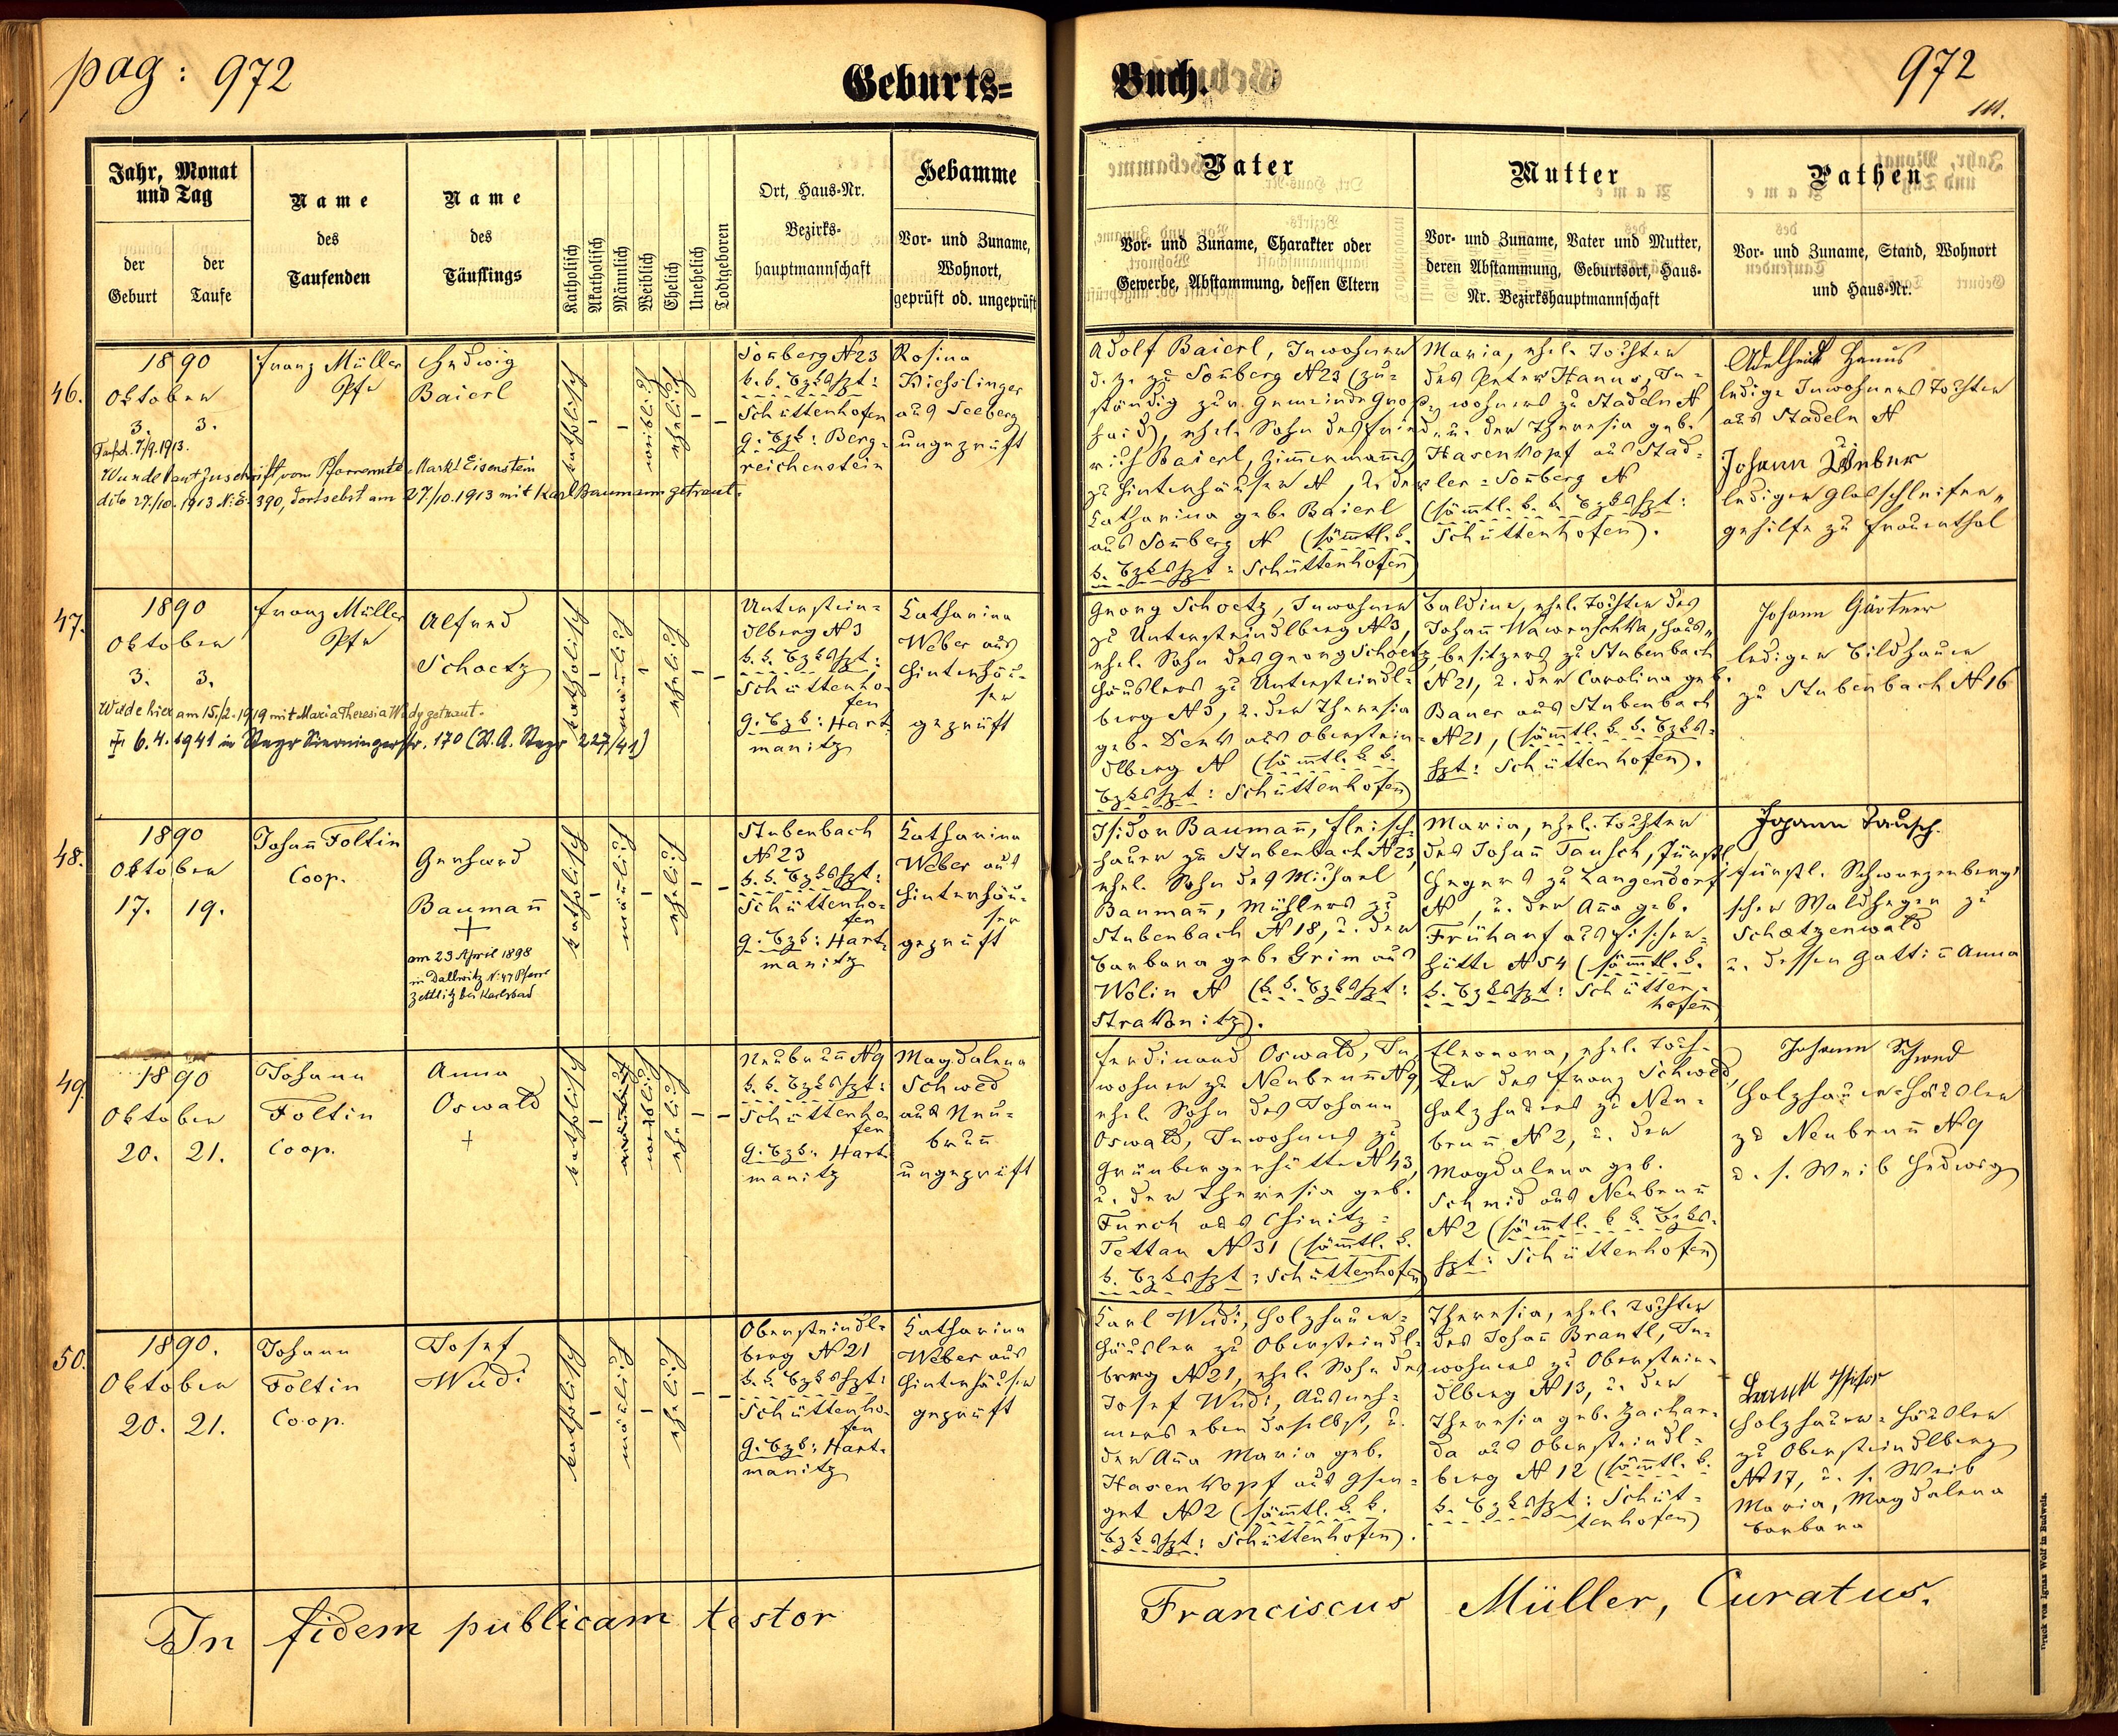 pag: 972
Geburts=
Buch.
972
111.
Jahr, Monat
und Tag
der
Geburt
der
Taufe
Name
des
Taufenden
Name
des
Täuflings
Katholisch
Akatholisch
Männlich
Weiblich
Ehelich
Unehelich
Todtgeboren
Ort, Haus-Nr.
Bezirks-
hauptmannschaft
Hebamme
Vor- und Zuname,
Wohnort,
geprüft od. ungeprüft
Vater
Vor- und Zuname, Charakter oder
Gewerbe, Abstammung, dessen Eltern
Mutter
Vor- und Zuname, Vater und Mutter,
deren Abstammung, Geburtsort, Haus-
Nr. Bezirkshauptmannschaft
Pathen
Vor- und Zuname, Stand, Wohnort
und Haus-Nr.
46.
1890
Oktober
3. 3.
Taufsch. 7/9.1913.
Wurde laut Zuschrift vom Pfarramte Markt Eisenstein
dto 27./10. 1913 N.E. 390, dortselbst am 27/10.1913 mit Karl Baumann getraut.
Franz Müller
Pfr
Hedwig
Baierl
katholisch
weiblich
ehelich
Sonberg N 23
k. k. Bzkshpt:
Schüttenhofen
G. Bzk: Berg-
reichenstein
Rosina
Kiesslinger
aus Seeberg
ungeprüft
Adolf Baierl, Inwohner
d. z. zu Sonberg N 23 (zu-
ständig zur Gemeinde Gross-
haid), ehel. Sohn des Fried-
rich Baierl, Zimmermanns
zu Hinterhäuser N , u. der
Katharina geb. Baierl
aus Sonberg N (sämtl. k.
k. Bzkshpt: Schüttenhofen)
Maria, ehel. Tochter
des Peter Hanus, In-
wohners zu Stadeln N ,
u. der Theresia geb.
Hasenkopf aus Stad-
ler=Sonberg N
(sämtl. k. k. Bzkshpt:
Schüttenhofen).
Adelheid Hanus
ledige Inwohners Tochter
aus Stadeln N
Johann Weber
lediger Glasschleifer-
gehilfe zu Frauenthal
47.
1890
Oktober
3. 3.
Wurde hier am 15./2. 1919 mit Maria Theresia Wudy getraut.
6.4.1941 in Steyr Sierningerstr. 170 (St.A. Steyr 227/41)
Franz Müller
Pfr
Alfred
Schoetz
katholisch
männlich
ehelich
Unterstein-
dlberg N 3
k. k. Bzkshpt:
Schüttenho-
fen
G. Bzk: Hart-
manitz
Katharina
Weber aus
Hinterhäu-
ser
geprüft
Georg Schoetz, Inwohner
zu Untersteindlberg N 3,
ehel. Sohn des Georg Schoetz,
Häuslers zu Untersteindl-
berg N 3, u. der Theresia
geb. Denk aus Oberstein-
dlberg N (sämtl. k. k.
Bzkshpt: Schüttenhofen)
Baldine, ehel. Tochter des
Johann Wawruschka, Haus-
besitzers zu Stubenbach
N 21, u. der Carolina geb.
Bauer aus Stubenbach
N 21, (sämtl. k. k. Bzks-
hpt: Schüttenhofen).
Johann Gärtner
lediger Bildhauer
zu Stubenbach N 16
48.
1890
Oktober
17. 19.
Johann Foltin
Coop.
Gerhard
Baumann
+
am 23 April 1898
in Dallwitz N. 47 Pfarre
Zettlitz bei Karlsbad
katholisch
männlich
ehelich
Stubenbach
N 23
k. k. Bzkshpt:
Schüttenho-
fen
G. Bzk: Hart-
manitz
Katharina
Weber aus
Hinterhäu-
ser
geprüft
Isidor Baumann, Fleisch-
hauer zu Stubenbach N 23,
ehel. Sohn des Michael
Baumann, Müllers zu
Stubenbach N 18, u. der
Barbara geb. Grim aus
Wolin N (k. k. Bzkshpt:
Strakonitz).
Maria, ehel. Tochter
des Johann Tausch, fürstl.
Hegers zu Langendorf
N , u. der Anna geb.
Frühauf aus Fischer-
hütte N 54 (sämtl. k.
k. Bzkshpt: Schütten-
hofen)
Johann Tausch.
fürstl. Schwarzenberg-
scher Waldheger zu
Schætzenwald
u. dessen Gattin Anna
49.
1890
Oktober
20. 21.
Johann
Foltin
Coop.
Anna
Oswald
+
katholisch
männlich
weiblich
ehelich
Neubrunn N 9
k. k. Bzkshpt:
Schüttenho-
fen
G. Bzk: Hart-
manitz
Magdalena
Schwed
aus Neu-
brunn
ungeprüft
Ferdinand Oswald, In-
wohner zu Neubrunn N 9,
ehel. Sohn des Johann
Oswald, Inwohners zu
Grünbergerhütte N 43,
u. der Theresia geb.
Furch aus Chinitz-
Tettau N 31 (sämtl. k.
k. Bzkshpt: Schüttenhofen)
Eleonora, ehel. Toch-
ter des Franz Schwed,
Holzhauers zu Neu-
brunn N 2, u. der
Magdalena geb.
Schmid aus Neubrunn
N 2 (sämtl. k. k. Bzks-
hpt: Schüttenhofen)
Johann Schwed
Holzhauer=Häusler
zu Neubrunn N 9
u. s. Weib Hedwig
50.
1890.
Oktober
20. 21.
Johann
Foltin
Coop.
Josef
Wudi
katholisch
männlich
ehelich
Obersteindl-
berg N 21
k. k. Bzkshpt:
Schüttenho-
fen
G. Bzk: Hart-
manitz
Katharina
Weber aus
Hinterhäuser
geprüft
Karl Wudi, Holzhauer-
häusler zu Obersteindl-
berg N 21, ehel. Sohn des
Josef Wudi, Ausneh-
mers eben daselbst, u.
der Anna Maria geb.
Hasenkopf aus Gsen-
get N 2 (sämtl. k. k.
Bzkshpt: Schüttenhofen).
Theresia, ehel. Tochter
des Johann Brantl, In-
wohners zu Oberstein-
dlberg N 13, u. der
Theresia geb. Zachar-
da aus Obersteindl-
berg N 12 (sämtl. k.
k. Bzkshpt: Schüt-
tenhofen)
Holzhauer=Häusler
zu Obersteindlberg
N 17, u. s. Weib
Maria, Magdalena
Barbara
In fidem publicam testor
Franciscus Müller, Curatus.
Druck von Ignaz Wolf in Budweis.